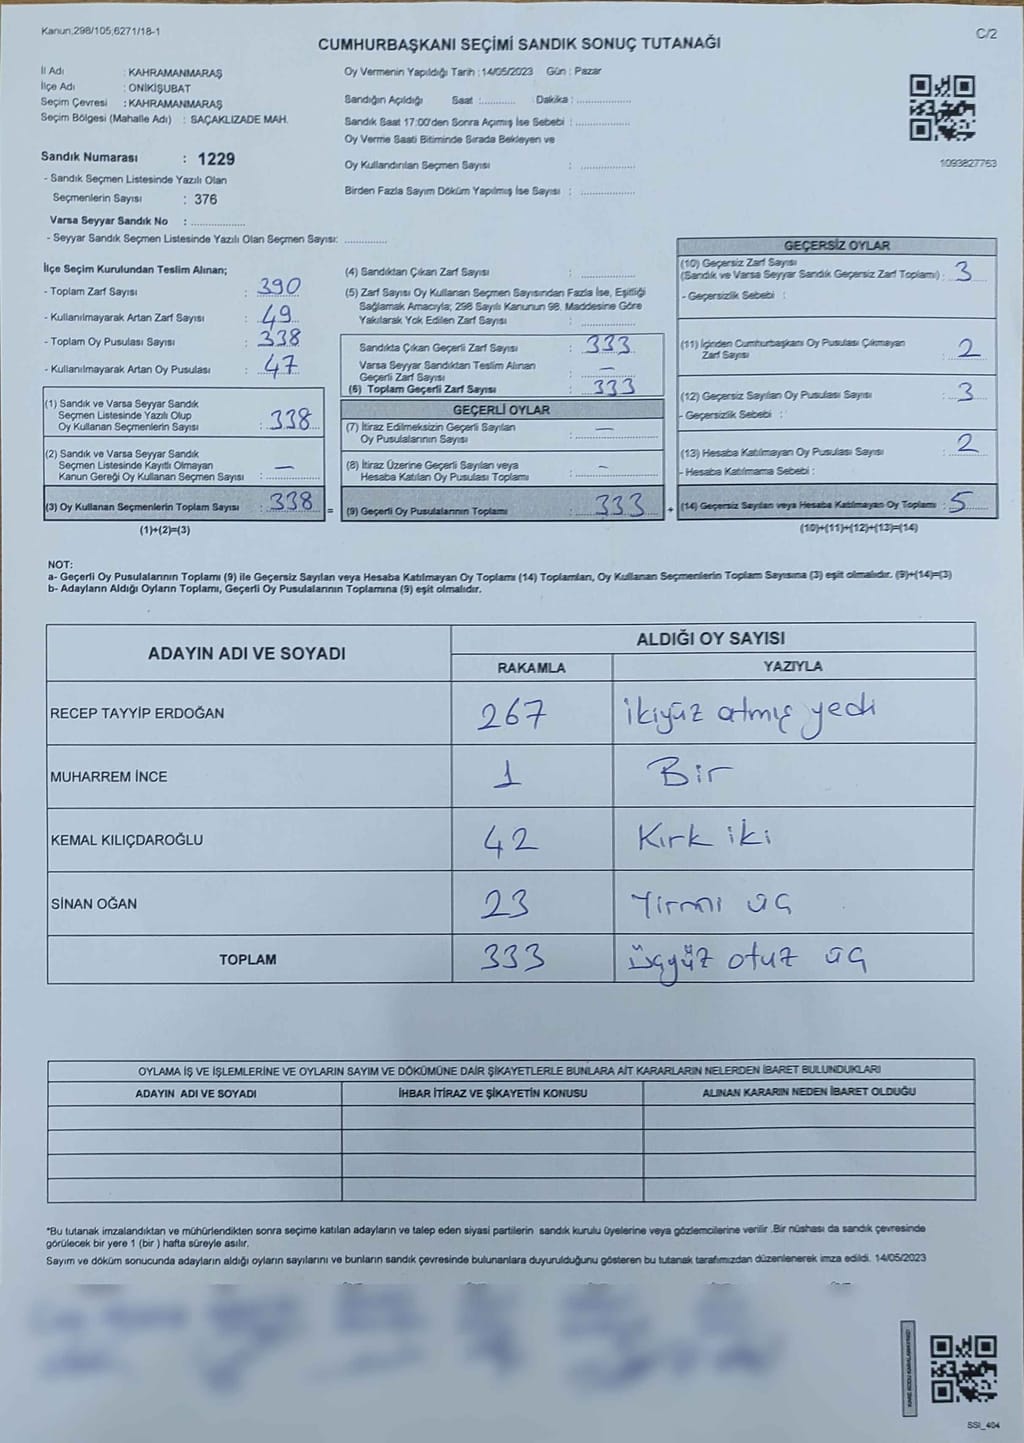 Kanun;298/105,6271/18-1
C/2
CUMHURBAŞKANI SEÇİMİ SANDIK SONUÇ TUTANAĞI
İl Adı : KAHRAMANMARAŞ
İlçe Adı : ONİKİŞUBAT
Seçim Çevresi : KAHRAMANMARAŞ
Seçim Bölgesi (Mahalle Adı) : SAÇAKLIZADE MAH.
Sandık Numarası : 1229
- Sandık Seçmen Listesinde Yazılı Olan
Seçmenlerin Sayısı : 376
Varsa Seyyar Sandık No : ..................
- Seyyar Sandık Seçmen Listesinde Yazılı Olan Seçmen Sayısı: ..............
Oy Vermenin Yapıldığı Tarih : 14/05/2023 Gün : Pazar
Sandığın Açıldığı Saat :............ Dakika : ..................
Sandık Saat 17:00'den Sonra Açımış İse Sebebi : ..................
Oy Verme Saati Bitiminde Sırada Bekleyen ve
Oy Kullandırılan Seçmen Sayısı : ..................
Birden Fazla Sayım Döküm Yapılmış İse Sayısı : ..................
1093827763
İlçe Seçim Kurulundan Teslim Alınan;
- Toplam Zarf Sayısı : 390
- Kullanılmayarak Artan Zarf Sayısı : 49
- Toplam Oy Pusulası Sayısı : 338
- Kullanılmayarak Artan Oy Pusulası : 47
(1) Sandık ve Varsa Seyyar Sandık
Seçmen Listesinde Yazılı Olup
Oy Kullanan Seçmenlerin Sayısı : 338
(2) Sandık ve Varsa Seyyar Sandık
Seçmen Listesinde Kayıtlı Olmayan
Kanun Gereği Oy Kullanan Seçmen Sayısı : —
(3) Oy Kullanan Seçmenlerin Toplam Sayısı : 338 =
(1)+(2)=(3)
(4) Sandıktan Çıkan Zarf Sayısı : ..................
(5) Zarf Sayısı Oy Kullanan Seçmen Sayısından Fazla İse, Eşitliği
Sağlamak Amacıyla; 298 Sayılı Kanunun 98. Maddesine Göre
Yakılarak Yok Edilen Zarf Sayısı : ..................
Sandıkta Çıkan Geçerli Zarf Sayısı : 333
Varsa Seyyar Sandıktan Teslim Alınan
Geçerli Zarf Sayısı : —
(6) Toplam Geçerli Zarf Sayısı : 333
GEÇERLİ OYLAR
(7) İtiraz Edilmeksizin Geçerli Sayılan
Oy Pusulalarının Sayısı : —
(8) İtiraz Üzerine Geçerli Sayılan veya
Hesaba Katılan Oy Pusulası Toplamı : —
(9) Geçerli Oy Pusulalarının Toplamı : 333 +
GEÇERSİZ OYLAR
(10) Geçersiz Zarf Sayısı
(Sandık ve Varsa Seyyar Sandık Geçersiz Zarf Toplamı) : 3
- Geçersizlik Sebebi :
(11) İçinden Cumhurbaşkanı Oy Pusulası Çıkmayan
Zarf Sayısı : 2
(12) Geçersiz Sayılan Oy Pusulası Sayısı : 3
- Geçersizlik Sebebi :
(13) Hesaba Katılmayan Oy Pusulası Sayısı : 2
- Hesaba Katılmama Sebebi :
(14) Geçersiz Sayılan veya Hesaba Katılmayan Oy Toplamı : 5
(10)+(11)+(12)+(13)=(14)
NOT:
a- Geçerli Oy Pusulalarının Toplamı (9) ile Geçersiz Sayılan veya Hesaba Katılmayan Oy Toplamı (14) Toplamları, Oy Kullanan Seçmenlerin Toplam Sayısına (3) eşit olmalıdır. (9)+(14)=(3)
b- Adayların Aldığı Oyların Toplamı, Geçerli Oy Pusulalarının Toplamına (9) eşit olmalıdır.
ADAYIN ADI VE SOYADI
ALDIĞI OY SAYISI
RAKAMLA YAZIYLA
RECEP TAYYİP ERDOĞAN 267 ikiyüz atmış yedi
MUHARREM İNCE 1 Bir
KEMAL KILIÇDAROĞLU 42 Kırk iki
SİNAN OĞAN 23 Yirmi üç
TOPLAM 333 üçyüz otuz üç
OYLAMA İŞ VE İŞLEMLERİNE VE OYLARIN SAYIM VE DÖKÜMÜNE DAİR ŞİKAYETLERLE BUNLARA AİT KARARLARIN NELERDEN İBARET BULUNDUKLARI
ADAYIN ADI VE SOYADI İHBAR İTİRAZ VE ŞİKAYETİN KONUSU ALINAN KARARIN NEDEN İBARET OLDUĞU
*Bu tutanak imzalandıktan ve mühürlendikten sonra seçime katılan adayların ve talep eden siyasi partilerin sandık kurulu üyelerine veya gözlemcilerine verilir .Bir nüshası da sandık çevresinde
görülecek bir yere 1 (bir ) hafta süreyle asılır.
Sayım ve döküm sonucunda adayların aldığı oyların sayılarını ve bunların sandık çevresinde bulunanlara duyurulduğunu gösteren bu tutanak tarafımızdan düzenlenerek imza edildi. 14/05/2023
SSİ_404